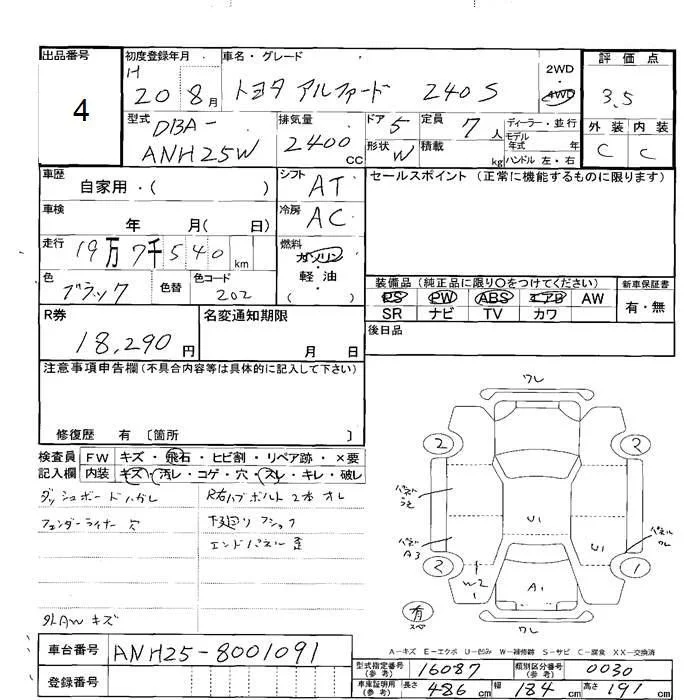 出品番号
4
初度登録年月
H
20 8月
車名・グレード
トヨタ アルファード 240S
2WD
・
4WD
評価点
3.5
外装 内装
C C
型式
DBA-
ANH25W
排気量
2400
CC
ドア 5
形状 W
定員 7人
積載 kg
ディーラー・並行
モデル
年式 年
ハンドル 左・右
車歴
自家用・( )
シフト
AT
セールスポイント(正常に機能するものに限ります)
車検
年 月( 日)
冷房
AC
走行
19万7千540km
燃料
ガソリン
・
軽油
( )
色
ブラック
色替
色コード
202
装備品(純正品に限り○をつけてください)
PS PW ABS エアB AW
SR ナビ TV カワ
新車保証書
有・無
R券
18,290円
名変通知期限
月 日
後日品
注意事項申告欄(不具合内容等は具体的に記入して下さい)
修復歴 有 〔箇所 〕
検査員
記入欄
FW キズ・飛石・ヒビ割・リペア跡・×要
内装 キズ・汚レ・コゲ・穴・スレ・キレ・破レ
ダッシュボードハガレ
R右ハブボルト2本オレ
フェンダーライナー穴
下廻リフショク
エンドパネル歪
外AWキズ
ワレ
2 2
U1
U1
A3
ワレ
2 1
W2
1
A1
有
スペ
ワレ
A-キズ E-エクボ U-凹み W-補修跡 S-サビ C-腐食 XX-交換済
車台番号
ANH25-8001091
登録番号
型式指定番号
(参考)
16087
類別区分番号
(参考)
0030
車庫証明用
(参考)
長さ 486cm 幅 184cm 高さ 191cm